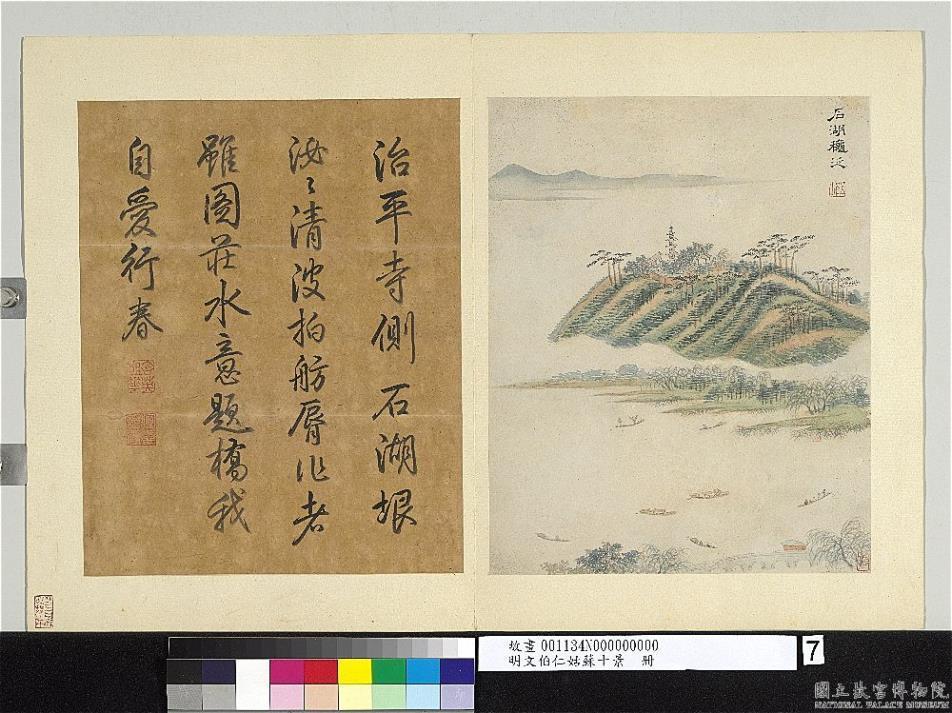 石湖秋泛
治平寺側石湖垠
渺〻清波拍舫脣作者
雖圖莊水意題橋我
自愛行春
故畫 001134N000000000
明文伯仁姑蘇十景 冊
7
國立故宮博物院
NATIONAL PALACE MUSEUM